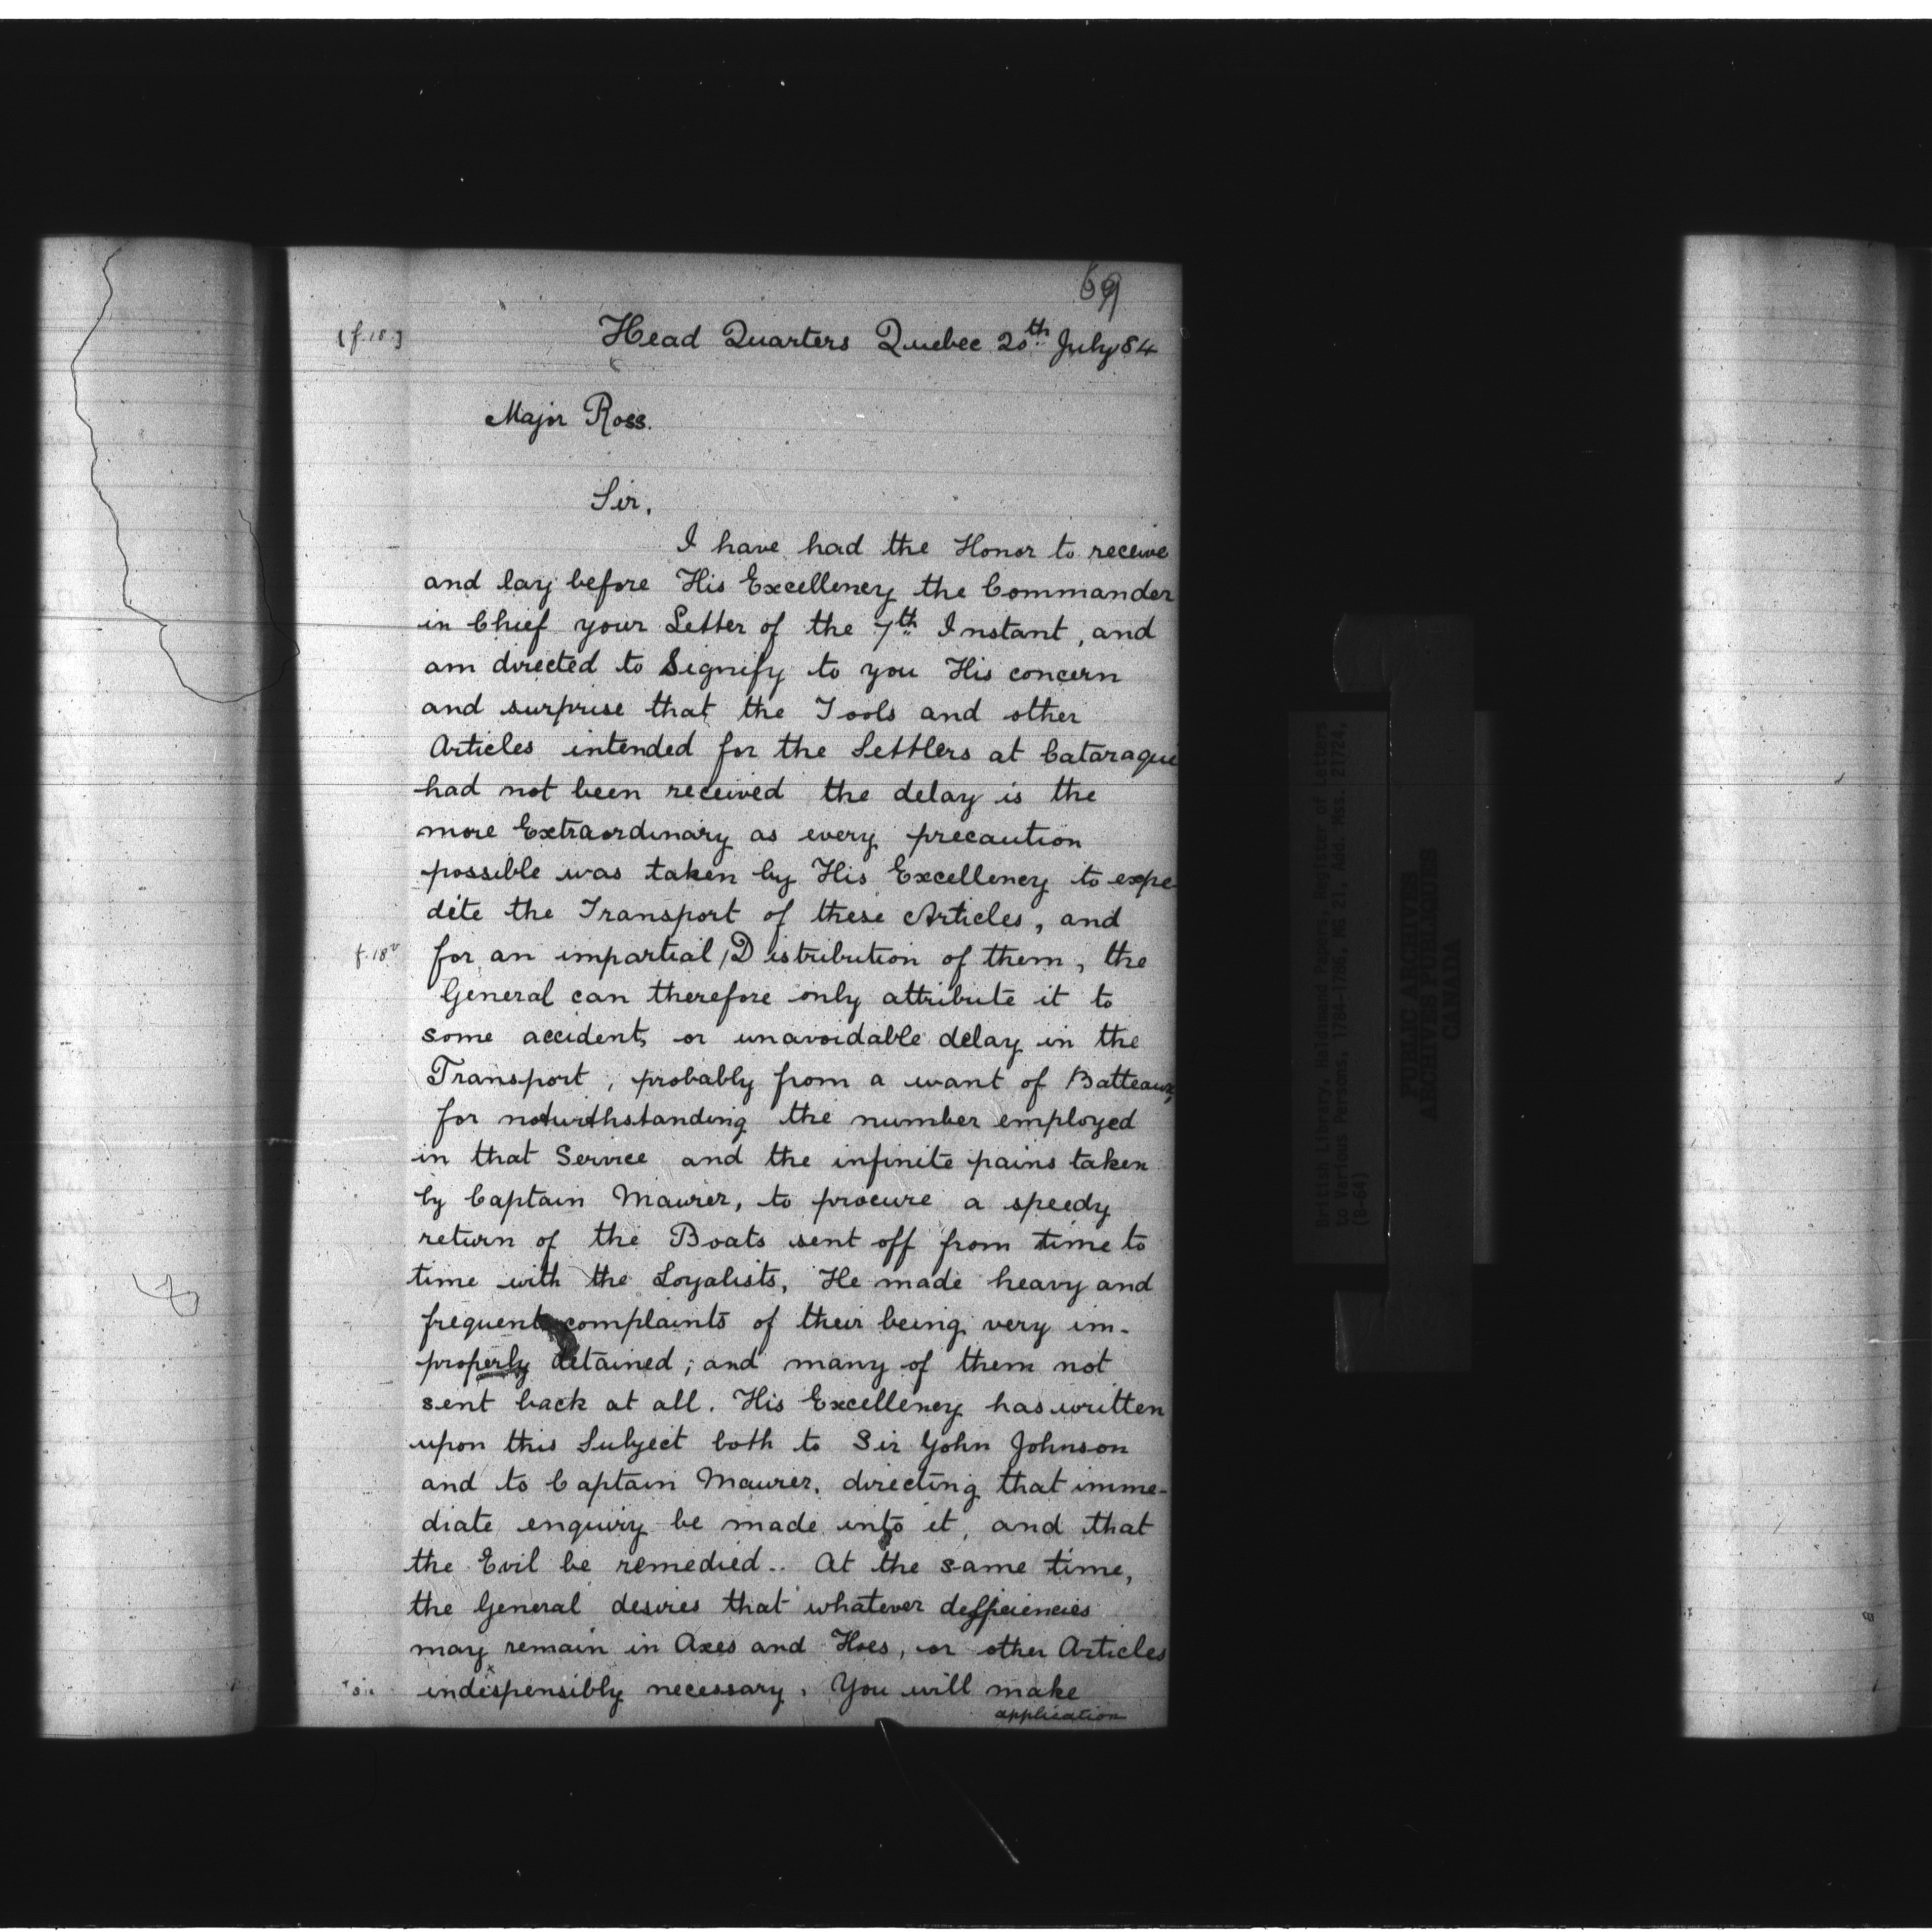 69
[f.18.] Head Quarters Quebec 20th July 84
Major Ross.
Sir,
I have had the Honor to receive
and lay before His Excellency the Commander
in Chief your Letter of the 7th Instant, and
am directed to Signify to you His concern
and surprise that the Tools and other
Articles intended for the Settlers at Cataraqui
had not been received the delay is the
more Extraordinary as every precaution
possible was taken by His Excellency to expe-
dite the Transport of these Articles, and
f.18v for an impartial /Distribution of them, the
General can therefore only attribute it to
some accident, or unavoidable delay in the
Transport, probably from a want of Batteaux,
for notwithstanding the number employed
in that Service and the infinite pains taken
by Captain Maurer, to procure a speedy
return of the Boats sent off from time to
time with the Loyalists, He made heavy and
frequent complaints of their being very im-
properly detained; and many of them not
sent back at all. His Excellency has written
upon this Subject both to Sir John Johnson
and to Captain Maurer, directing that imme-
diate enquiry be made into it, and that
the Evil be remedied.. At the same time,
the General desires that whatever defficiencies
may remain in Axes and Hoes, or other Articles
indispensibly necessary, You will make
application
British Library, Haldimand Papers. Register of Letters
to Various Persons, 1784-1786, MG 21, Add. Mss. 21724,
(B-64)
PUBLIC ARCHIVES
ARCHIVES PUBLIQUES
CANADA